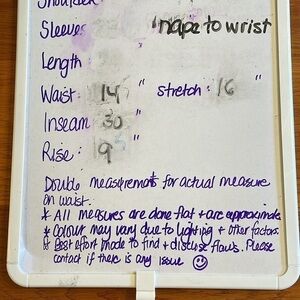 Shoulder
Sleeves: " nape to wrist
Length: "
Waist: 14" stretch: 16"
Inseam: 30"
Rise: 9"
Double measurements for actual measure
on waist.
* All measures are done flat + are approximate
* Colour may vary due to lighting + other factors.
* Best effort made to find + disclose flaws. Please
contact if there is any issue ☺